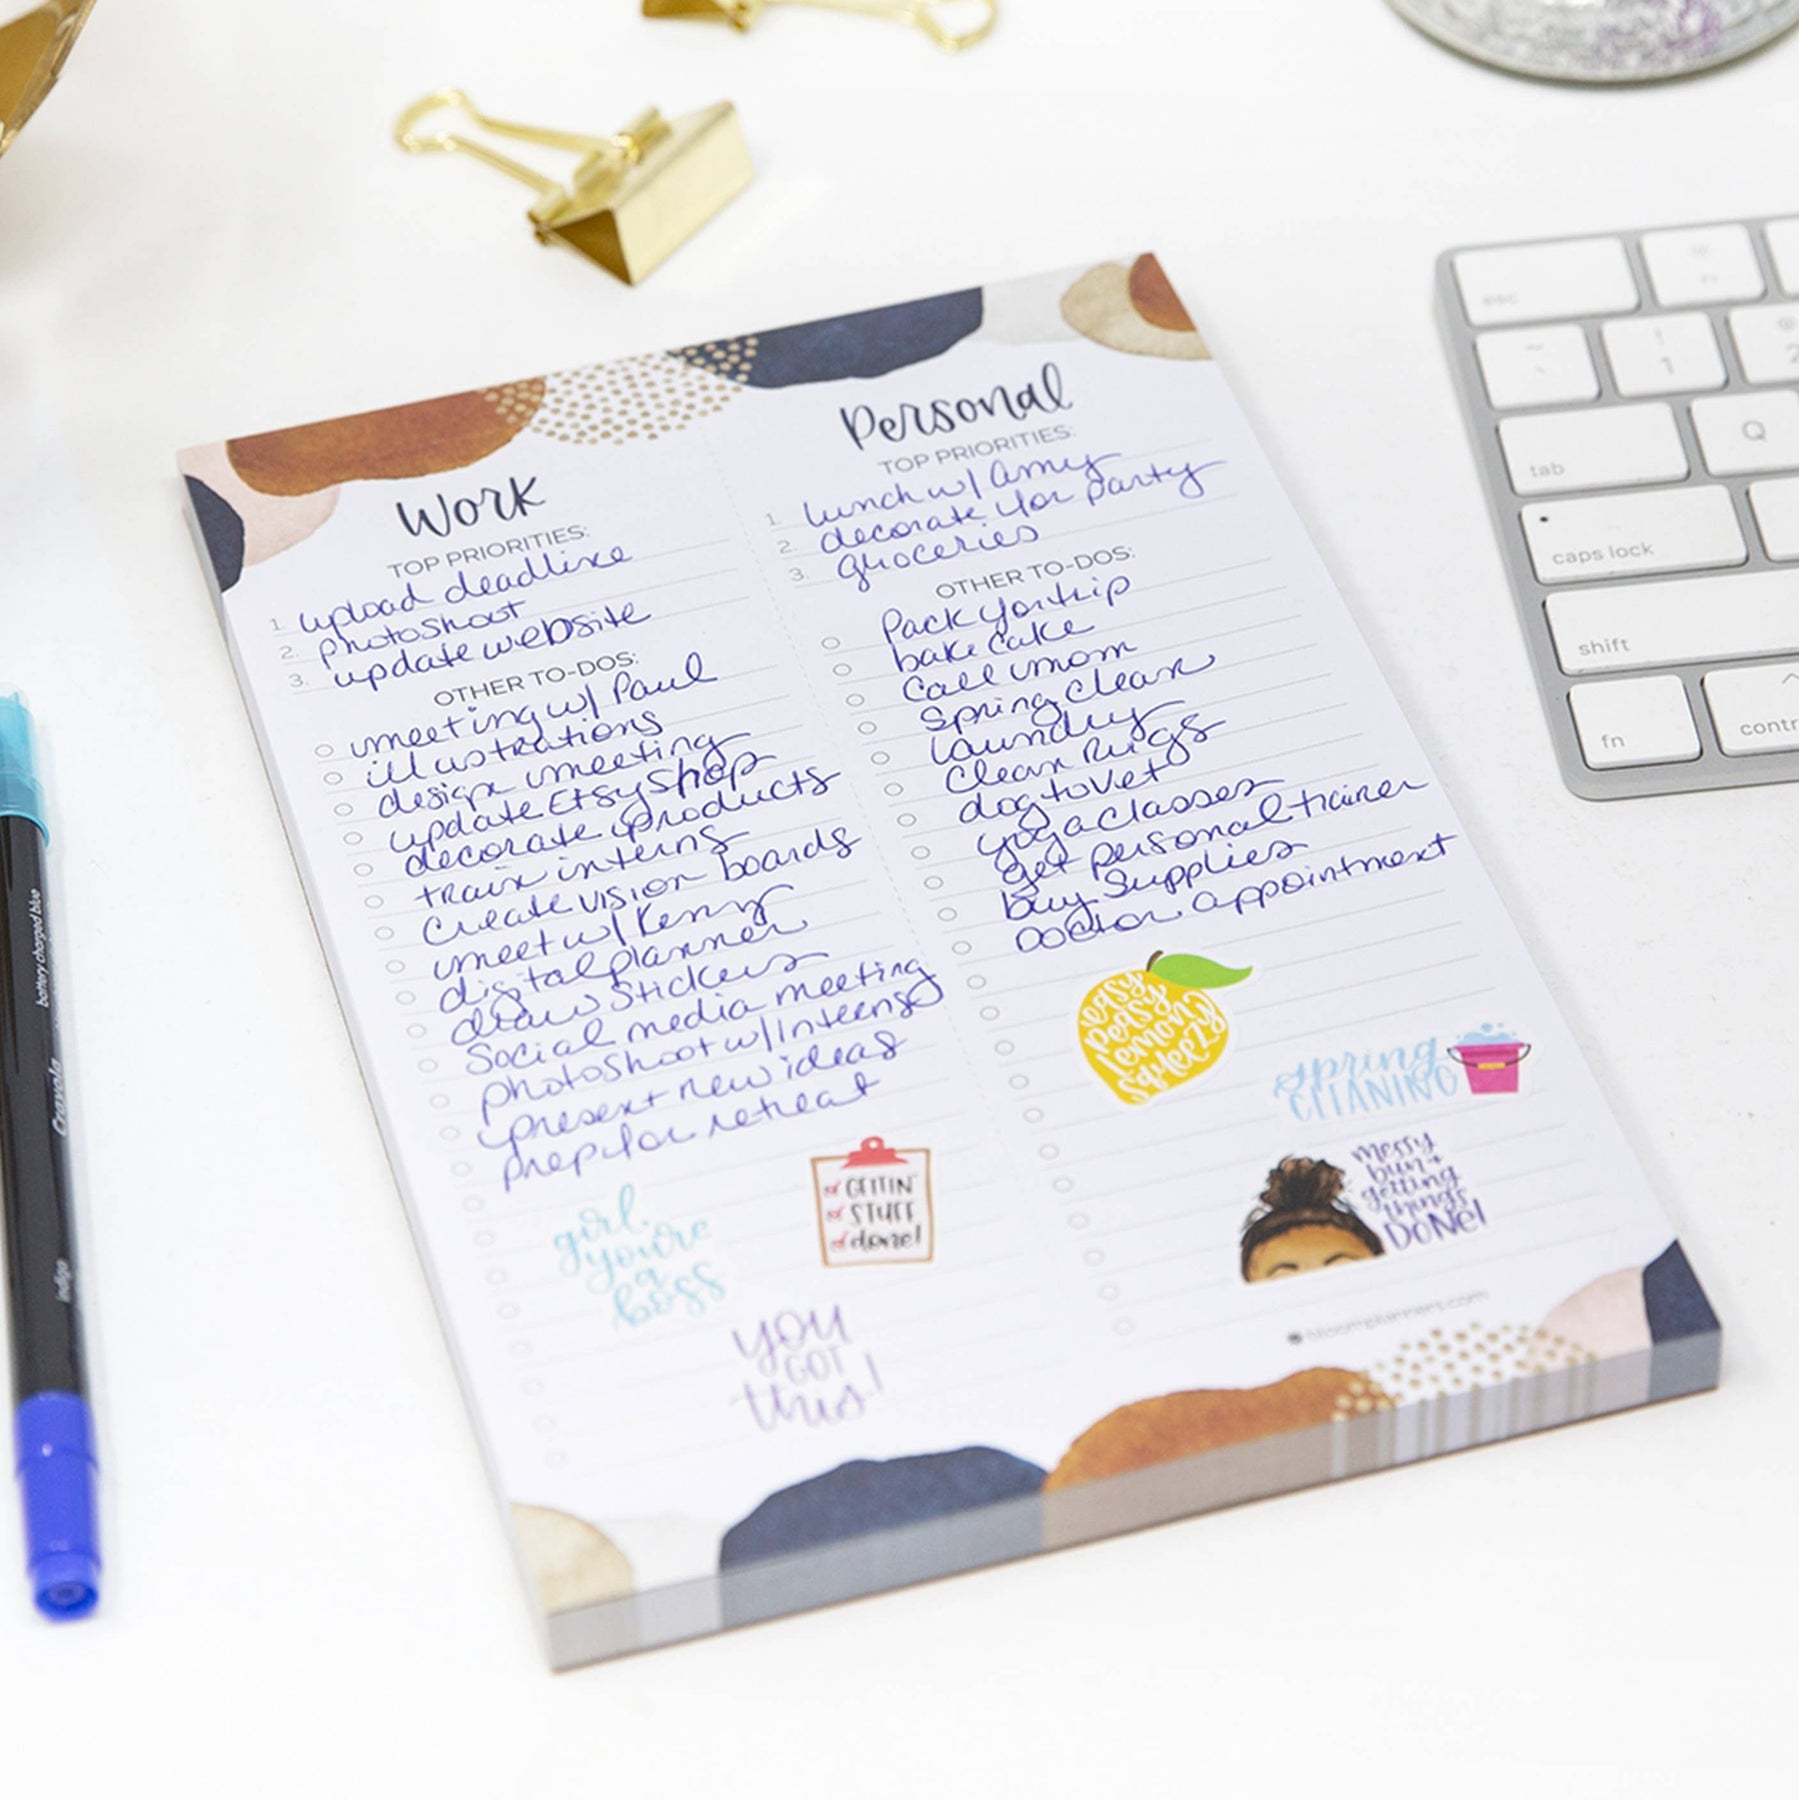 Work
TOP PRIORITIES:
1. upload deadline
2. photoshoot
3. update website
OTHER TO-DOS:
meeting w/ Paul
illustrations
design meeting
update Etsy shop
decorate products
train interns
create vision boards
meet w/ Kenny
digital planner
draw stickers
Social media meeting
photoshoot w/ interns
present new ideas
prep for retreat
girl,
you're
a
boss
GETTIN'
STUFF
done!
YOU
GOT
this!
Personal
TOP PRIORITIES:
1. lunch w/ Amy
2. decorate for party
3. groceries
OTHER TO-DOS:
Pack for trip
bake cake
Call mom
Spring clean
laundry
Clean Rugs
dog to Vet
yoga classes
get personal trainer
buy Supplies
Doctor appointment
easy
peasy
lemon
squeezy
spring
CLEANING
messy
bun +
getting
things
DONE!
bloomplanners.com
esc
1
2
tab
Q
caps lock
shift
fn
contr
battery charged blue
Crayola
indigo